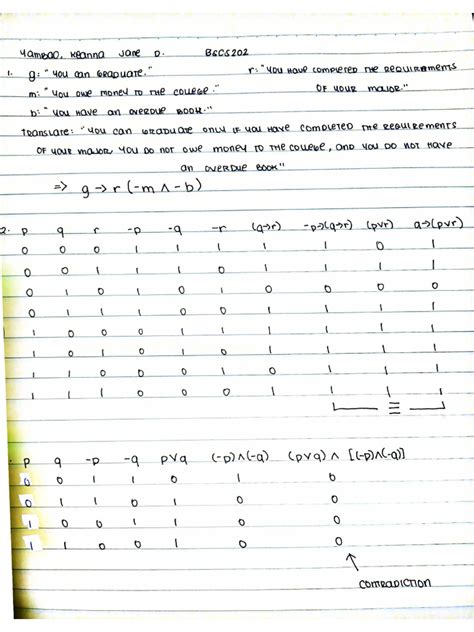 YAMBAO, KEANNA JANE D. BSCS202
1. g: "YOU CAN GRADUATE." r: "YOU HAVE COMPLETED THE REQUIREMENTS
m: "YOU OWE MONEY TO THE COLLEGE." OF YOUR MAJOR."
b: "YOU HAVE AN OVERDUE BOOK."
TRANSLATE: "YOU CAN GRADUATE ONLY IF YOU HAVE COMPLETED THE REQUIREMENTS
OF YOUR MAJOR YOU DO NOT OWE MONEY TO THE COLLEGE, AND YOU DO NOT HAVE
AN OVERDUE BOOK"
=> g→r (-m ∧ -b)
2. p q r -p -q -r (q→r) -p→(q→r) (pvr) q→(pvr)
0 0 0 1 1 1 1 1 0 1
0 0 1 1 1 0 1 1 1 1
0 1 0 1 0 1 0 0 0 0
0 1 1 1 0 0 1 1 1 1
1 0 0 0 1 1 1 1 1 1
1 0 1 0 1 0 1 1 1 1
1 1 0 0 0 1 0 1 1 1
1 1 1 0 0 0 1 1 1 1
≡
p q -p -q pvq (-p)∧(-q) (pvq) ∧ [(-p)∧(-q)]
0 0 1 1 0 1 0
0 1 1 0 1 0 0
1 0 0 1 1 0 0
1 1 0 0 1 0 0
CONTRADICTION